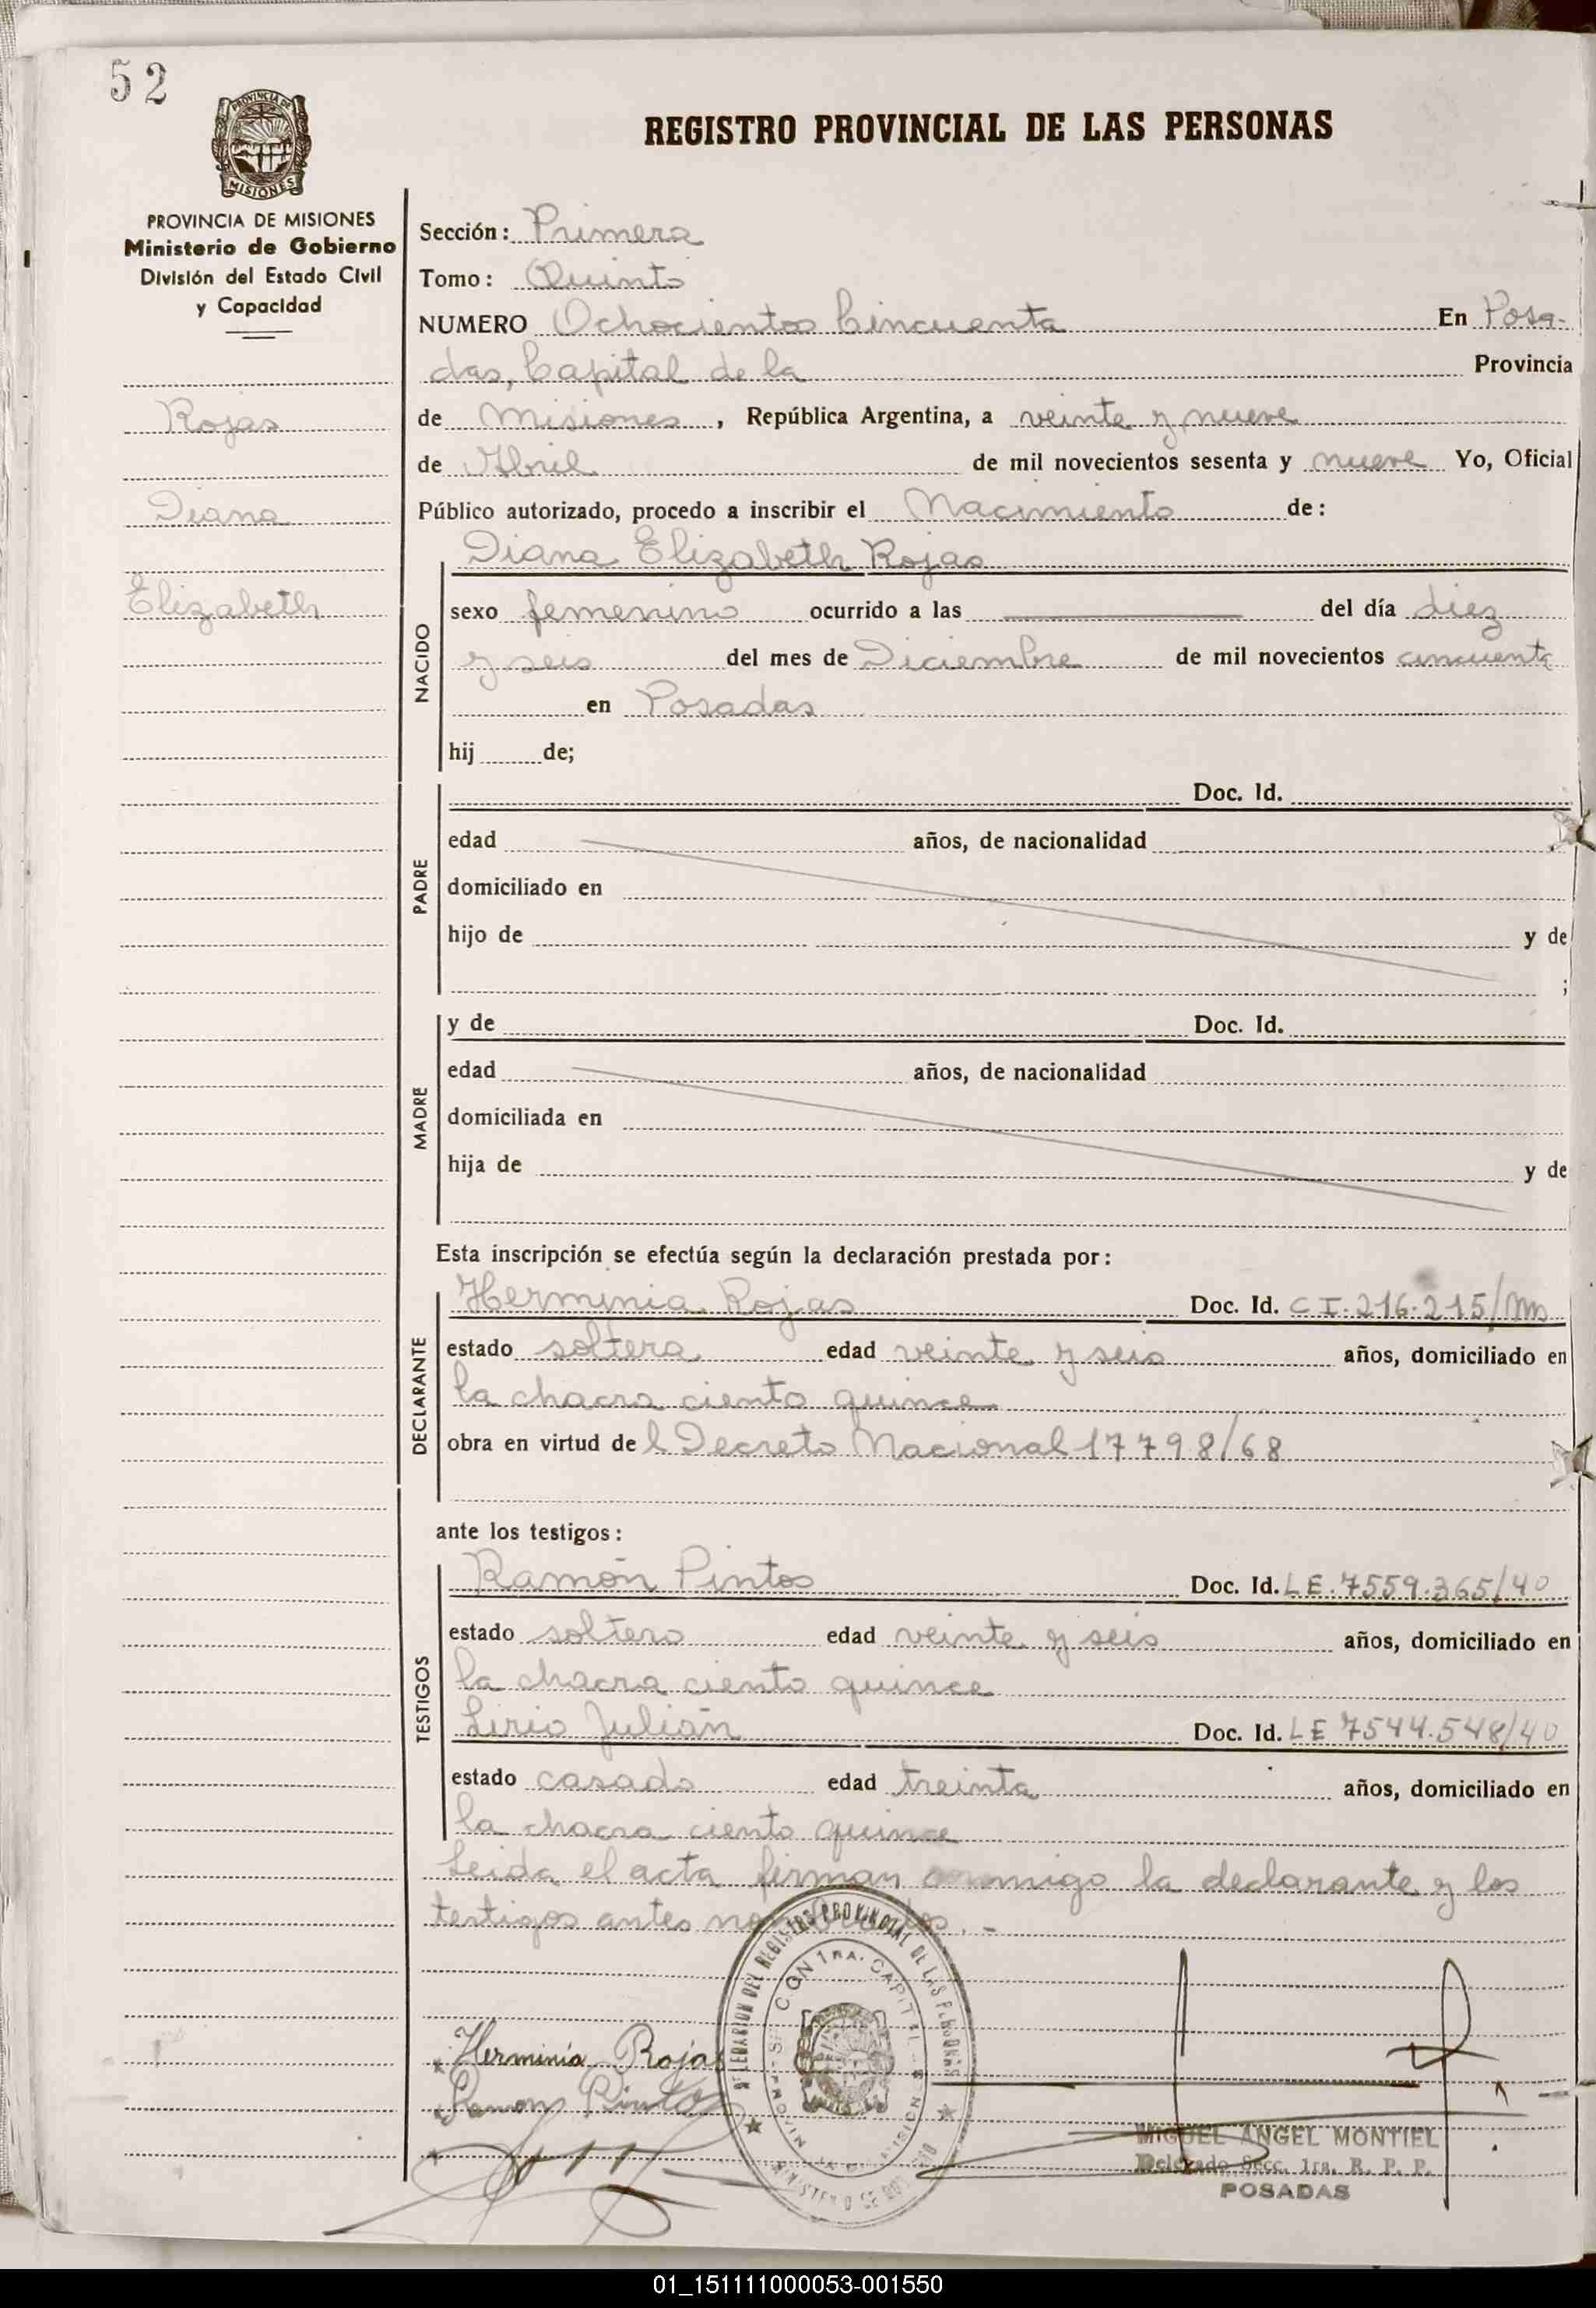 52
PROVINCIA DE MISIONES
REGISTRO PROVINCIAL DE LAS PERSONAS
PROVINCIA DE MISIONES
Ministerio de Gobierno
División del Estado Civil
y Capacidad
Rojas
Diana
Elizabeth
Sección: Primera
Tomo: Quinto
NUMERO Ochocientos Cincuenta En Posa-
das, Capital de la Provincia
de Misiones, República Argentina, a veinte y nueve
de Abril de mil novecientos sesenta y nueve Yo, Oficial
Público autorizado, procedo a inscribir el Nacimiento de:
NACIDO
Diana Elizabeth Rojas
sexo femenino ocurrido a las del día diez
y seis del mes de Diciembre de mil novecientos cincuenta
en Posadas
hij de;
PADRE
Doc. Id.
edad años, de nacionalidad
domiciliado en
hijo de y de
;
MADRE
y de Doc. Id.
edad años, de nacionalidad
domiciliada en
hija de y de
Esta inscripción se efectúa según la declaración prestada por:
DECLARANTE
Herminia Rojas Doc. Id. C I. 216.215/Mns
estado soltera edad veinte y seis años, domiciliado en
la chacra ciento quince
obra en virtud del Decreto Nacional 17798/68
ante los testigos:
TESTIGOS
Ramón Pintos Doc. Id. L E. 7559.365/40
estado soltero edad veinte y seis años, domiciliado en
la chacra ciento quince
Lirio Julián Doc. Id. L E 7544.548/40
estado casado edad treinta años, domiciliado en
la chacra ciento quince
Leida el acta firman conmigo la declarante y los
testigos antes nombrados. -
Herminia Rojas
Ramon Pintos
REGISTRO PROVINCIAL DE LAS PERSONAS
MIGUEL ANGEL MONTIEL
Delegado Secc. 1ra. R. P. P.
POSADAS
01_151111000053-001550